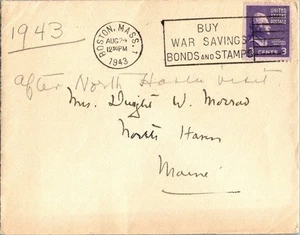 1943
BOSTON, MASS. 1
AUG 24
12 30 PM
1943
BUY
WAR SAVINGS
BONDS AND STAMPS
UNITED STATES
POSTAGE
3 CENTS 3
After North Haven visit
Mrs. Dwight W. Morrow
North Haven
Maine